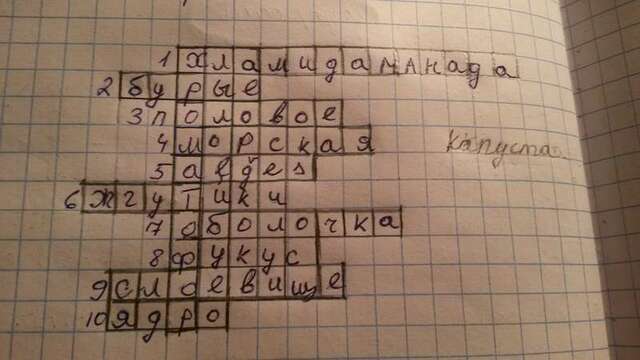 1 хламидаманада
2 бурые
3 половое
4 морская капуста
5
6 жгутики
7 оболочка
8 фукус
9 слоевище
10 ядро